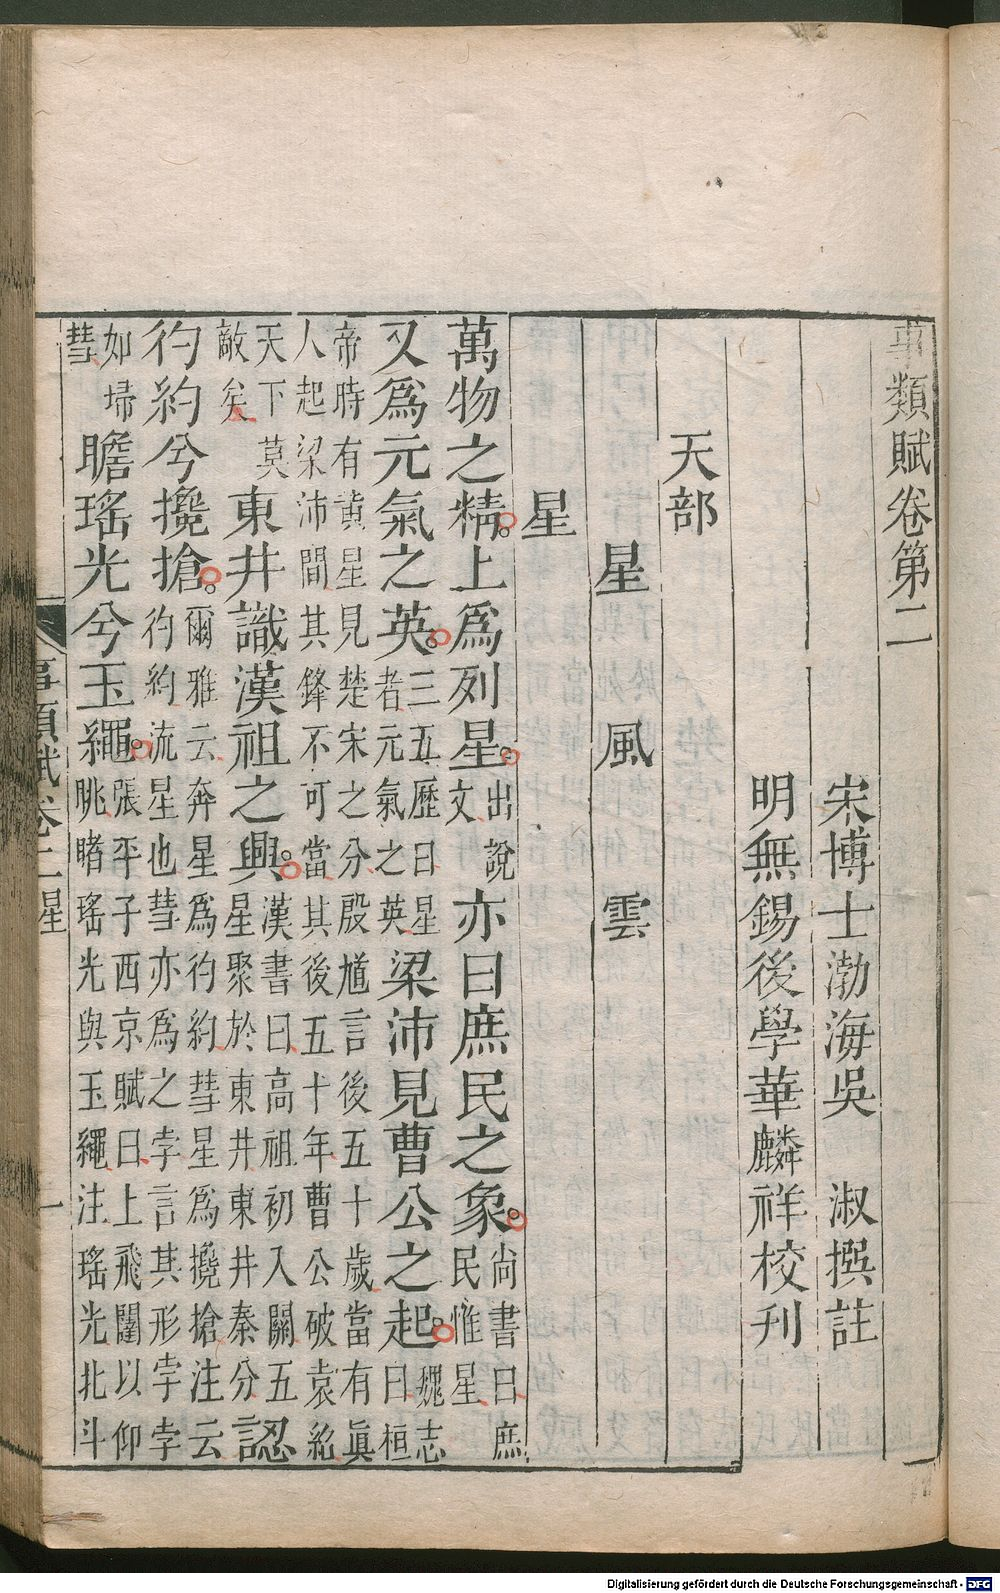 事類賦卷第二
宋博士渤海吳　淑撰註
明無錫後學華麟祥校刊
天部
星　風　雲
星
萬物之精上為列星出說文亦曰庶民之象尚書曰庶民惟星
又為元氣之英三五歷曰星者元氣之英梁沛見曹公之起魏志曰桓
帝時有黃星見楚宋之分殷馗言後五十歲當有眞
人起梁沛間其鋒不可當其後五十年曹公破袁紹
天下莫敵矣東井識漢祖之興漢書曰高祖初入關五星聚於東井東井秦分認
彴約兮攙搶爾雅云奔星為彴約彗星為攙搶注云彴約流星也彗亦為之孛言其形孛孛
如埽彗瞻瑤光兮玉繩張平子西京賦曰上飛闥以仰眺睹瑤光與玉繩注瑤光北斗
事類賦卷二 星 一
Digitalisierung gefördert durch die Deutsche Forschungsgemeinschaft - DFG